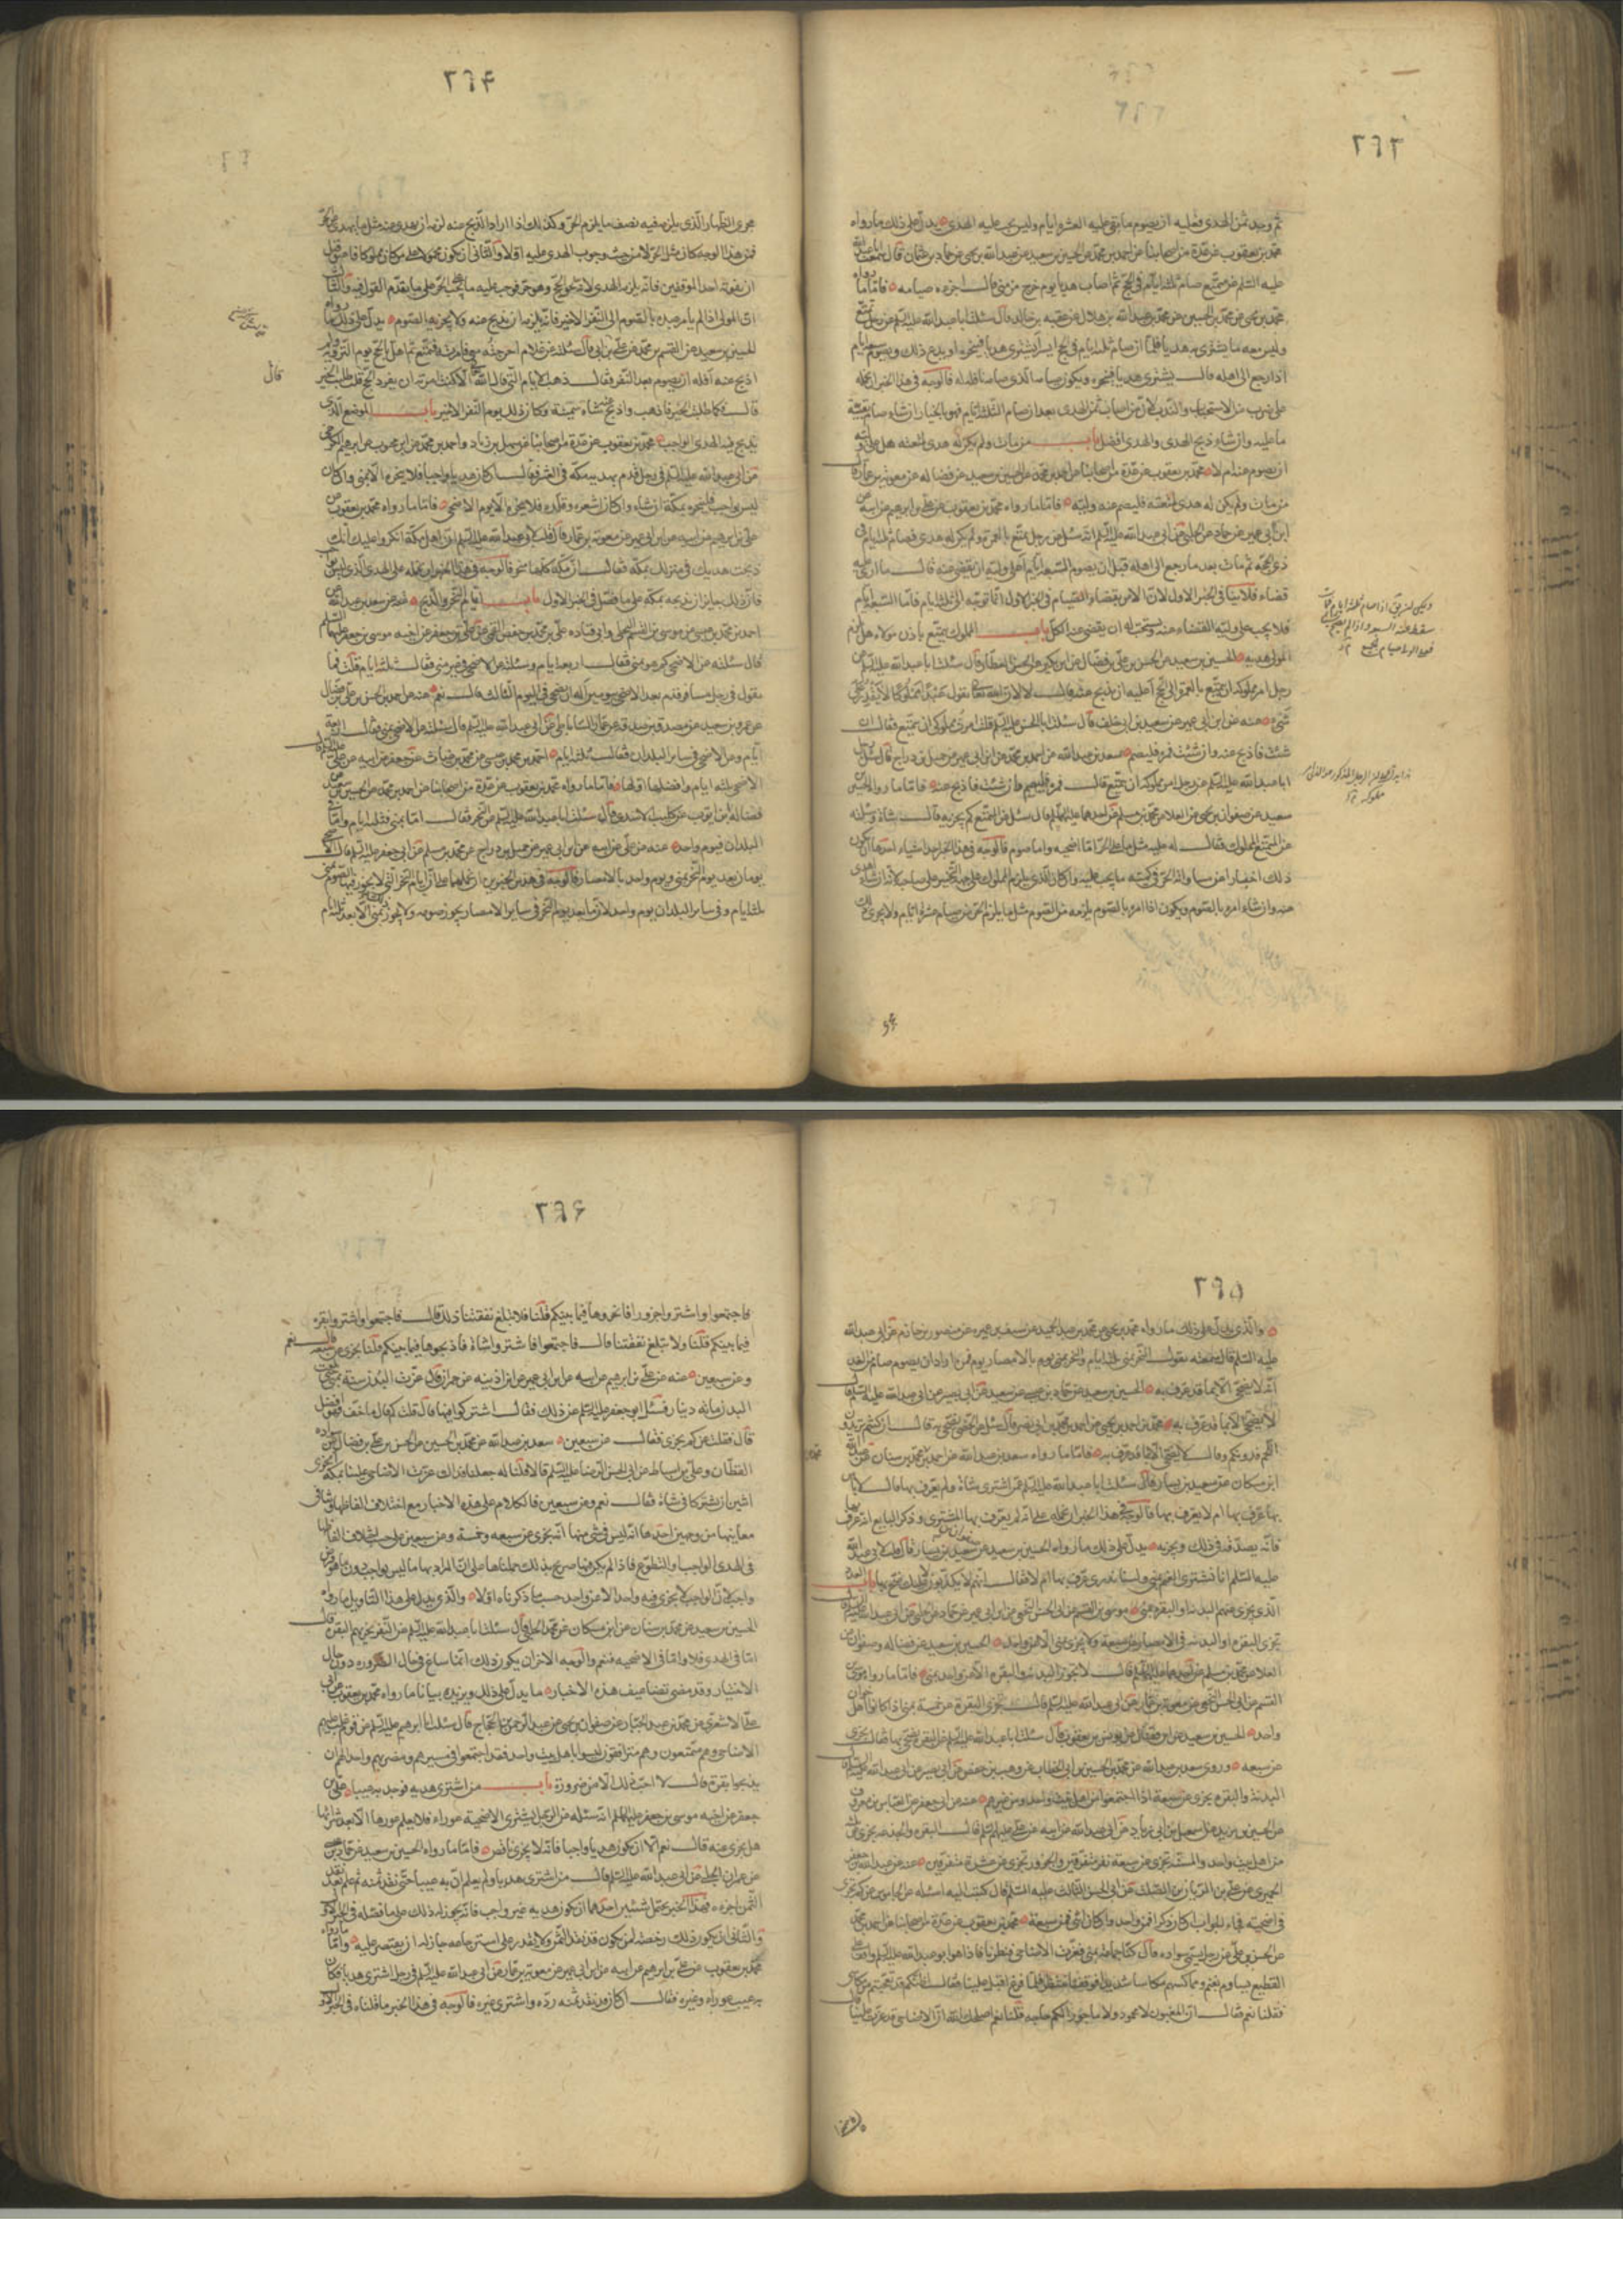 ٣٩٣
ثم وجد ثمن الهدى فعليه ان يصوم ما بقى عليه العشرة ايام وليس يجب عليه الهدى يدل على ذلك ما رواه
محمد بن يعقوب عن عدة من اصحابنا عن احمد بن محمد عن الحسين بن سعيد عن عبد الله بن يحيى عن حماد بن عثمان قال سالت ابا عبد الله
عليه السلم عن متمتع صام ثلثة ايام فى الحج ثم اصاب هديا يوم خرج من منى قال اجزءه صيامه فاما ما رواه
محمد بن يحيى عن محمد بن الحسين عن محمد بن عبد الله بن هلال عن عقبه بن خالد قال سئلت ابا عبد الله عليه السلم عن رجل تمتع
وليس معه ما يشترى به هديا فلما ان صام ثلثة ايام فى الحج ايسر ايشترى هديا فينحره او يدع ذلك ويصوم سبعة ايام
اذا رجع الى اهله قال يشترى هديا فينحره ويكون صيامه الذى صامه نافلة له فالوجه فى هذا الخبر ان نحمله
على ضرب من الاستحباب والندب لان من اصاب ثمن الهدى بعد ان صام الثلثة ايام فهو بالخيار ان شاء صام بقية
ما عليه وان شاء ذبح الهدى والهدى افضل باب من مات ولم يكن له هدى لمتعته هل على وليه
ان يصوم عنه ام لا محمد بن يعقوب عن عدة من اصحابنا عن احمد بن محمد عن الحسين بن سعيد عن فضاله عن معوية بن عمار قال
من مات ولم يكن له هدى لمتعته فليصم عنه وليه فاما ما رواه محمد بن يعقوب عن على بن ابرهيم عن ابيه عن
ابن ابى عمير عن حماد عن الحلبى عن ابى عبد الله عليه السلم انه سئل عن رجل تمتع بالعمرة ولم يكن له هدى فصام ثلثة ايام فى
ذى الحجة ثم مات بعد ما رجع الى اهله قبل ان يصوم السبعة الايام اعلى وليه ان يقضى عنه قال ما ارى عليه
قضاء فلا ينافى الخبر الاول لان الامر بقضاء الصيام فى الخبر الاول انما توجه الى ثلثة ايام فاما السبعة ايام
فلا يجب على وليه القضاء عنه ويستحب له ان يقضى عنه الكل باب المملوك يتمتع باذن مولاه هل يلزم
المولى هديه الحسين بن سعيد عن الحسن بن على بن فضال عن ابن بكير عن الحسن العطار قال سئلت ابا عبد الله عليه السلم عن
رجل امر مملوكه ان يتمتع بالعمرة الى الحج اعليه ان يذبح عنه قال لا لان الله يقول عبدا مملوكا لا يقدر على
شىء عنه عن ابن ابى عمير عن سعيد بن ابى خلف قال سئلت ابا الحسن عليه السلم قلت امرت مملوكى ان يتمتع فقال ان
شئت فاذبح عنه وان شئت فمره فليصم سعد بن عبد الله عن احمد بن محمد عن ابن ابى عمير عن جميل بن دراج قال سئل رجل
ابا عبد الله عليه السلم عن رجل امر مملوكه ان يتمتع قال فمره فليصم فان شئت فاذبح عنه فاما ما رواه الحسين بن
سعيد عن صفوان بن يحيى عن العلا عن محمد بن مسلم عن احدهما عليهما السلم قال سئل عن المتمتع كم يجزيه قال شاة وسئلته
عن المتمتع المملوك فقال له عليه مثل ما على الحر اما اضحيه واما صوم فالوجه فى هذا الخبر احد اشياء احدها ان يكون
ذلك اخبارا عن مساواته الحر فى كمية ما يجب عليه وان كان الذى يلزم المملوك على جهة التخيير على صاحبه لانه ان شاء اهدى
عنه وان شاء امره بالصوم ويكون اذا امره بالصوم يلزمه من الصوم مثل ما يلزم الحر من صيام عشرة ايام ولا يجرى ذلك
ويمكن
سقط عنه السبعة واذا لم يصم
٣٩۴
مجرى الظهار الذى يلزمه فيه نصف ما يلزم الحر وكذلك اذا اراد الذبح عنه لزمه ان يهدى عنه مثل ما يهدى عن الحر
فمن هذا الوجه كان مثل الحر لا من حيث وجوب الهدى عليه اولا والثانى ان يكون محمولا على من كان مملوكا فاعتق قبل
ان يفوته احد الموقفين فانه يلزمه الهدى لانه يحج الحج وهو حر فوجب عليه ما يجب على الحر على ما تقدم القول فيه والثالث
ان المولى اذا لم يامر عبده بالصوم الى النفر الاخير فانه يلزمه ان يذبح عنه ولا يجزيه الصوم يدل على ذلك ما رواه
الحسين بن سعيد عن القسم بن محمد عن على بن ابى قال سئلته عن غلام اخرجته معى فامرته فتمتع ثم اهل بالحج يوم التروية ولم
اذبح عنه افله ان يصوم بعد النفر فقال ذهبت الايام التى قال الله الا كنت امرته ان يفرد الحج قلت طلبت الخير
قال كما طلبت الخير فاذهب واذبح عنه شاة سمينة وكان ذلك يوم النفر الاخير باب الموضع الذى
يذبح فيه الهدى الواجب محمد بن يعقوب عن عدة من اصحابنا عن سهل بن زياد واحمد بن محمد عن ابن محبوب عن ابرهيم الكرخى
عن ابى عبد الله عليه السلم فى رجل قدم بهديه مكة فى العشر فقال ان كان هديا واجبا فلا ينحره الا بمنى وان كان
ليس بواجب فلينحره بمكة ان شاء وان كان اشعره وقلده فلا ينحره الا يوم الاضحى فاما ما رواه محمد بن يعقوب عن
على بن ابرهيم عن ابيه عن ابن ابى عمير عن معوية بن عمار قال قلت لابى عبد الله عليه السلم ان اهل مكة انكروا عليك انك
ذبحت هديك فى منزلك بمكة فقال ان مكة كلها منحر فالوجه فى هذا الخبر ان نحمله على الهدى الذى ليس بواجب
فان ذلك جايز ان يذبحه بمكة على ما فصل فى الخبر الاول باب ايام النحر والذبح سعد بن عبد الله عن
احمد بن محمد بن عيسى عن موسى بن القسم البجلى وابى قتاده على بن محمد بن حفص القمى عن على بن جعفر عن اخيه موسى بن جعفر عليهما السلم
قال سئلته عن الاضحى كم هو بمنى فقال اربعة ايام وسئلته عن الاضحى فى غير منى فقال ثلثة ايام فقلت فما
تقول فى رجل مسافر قدم بعد الاضحى بيومين اله ان يضحى فى اليوم الثالث قال نعم عنه عن احمد بن الحسن بن على بن فضال
عن عمرو بن سعيد عن مصدق بن صدقه عن عمار الساباطى عن ابى عبد الله عليه السلم قال سئلته عن الاضحى بمنى فقال اربعة
ايام وعن الاضحى فى ساير البلدان فقال ثلثة ايام احمد بن محمد بن عيسى عن محمد بن غياث عن جعفر عن ابيه عن على عليه السلم قال
الاضحى ثلثة ايام وافضلها اولها فاما ما رواه محمد بن يعقوب عن عدة من اصحابنا عن احمد بن محمد عن الحسين بن سعيد عن
فضالة بن ايوب عن كليب الاسدى قال سئلت ابا عبد الله عليه السلم عن النحر فقال اما بمنى فثلثة ايام واما فى
البلدان فيوم واحد عنه عن على عن ابيه عن ابن ابى عمير عن جميل بن دراج عن محمد بن مسلم عن ابى جعفر عليه السلم قال الاضحى
يومان بعد يوم النحر بمنى ويوم واحد بالامصار فالوجه فى هذين الخبرين ان نحملهما على ان ايام النحر التى لا يجوز فيها الصوم بمنى
ثلثة ايام وفى ساير البلدان يوم واحد لان ما بعد يوم النحر فى ساير الامصار يجوز صومه ولا يجوز بمنى الا بعد ثلثة ايام
قال
٣٩۵
والذى يدل على ذلك ما رواه محمد بن يحيى عن محمد بن عبد الحميد عن سيف بن عميره عن منصور بن حازم عن ابى عبد الله
عليه السلم قال سمعته يقول النحر بمنى ثلثة ايام والنحر بالامصار يوم فمن اراد ان يصوم صام من الغد
انه لا يضحى الا بما قد عرف به الحسين بن سعيد عن حماد بن عيسى عن شعيب عن ابى بصير عن ابى عبد الله عليه السلم قال
لا يضحى الا بما قد عرف به محمد بن احمد بن يحيى عن احمد بن محمد بن ابى نصر قال سئل عن الخصى يضحى به قال ان كنتم تريدون
اللحم فدونكم وقال لا يضحى الا بما قد عرف به فاما ما رواه سعد بن عبد الله عن احمد بن محمد عن محمد بن سنان عن عبد الله
ابن مسكان عن سعيد بن يسار قال سئلت ابا عبد الله عليه السلم عمن اشترى شاة ولم يعرف بها قال لا باس
بها عرف بها ام لا يعرف بها فالوجه فى هذا الخبر ان نحمله على انه لم يعرف بها المشترى وذكر البايع انه عرف بها
فانه يصدقه فى ذلك ويجزيه يدل على ذلك ما رواه الحسين بن سعيد عن سعيد بن يسار قال قلت لابى عبد الله
عليه السلم انا نشترى الغنم بمنى ولسنا ندرى عرف بها ام لا فقال انهم لا يكذبون لا عليك ضح بها باب العدد
الذى تجزى عنهم البدنه او البقره بمنى موسى بن القسم عن ابى الحسين النخعى عن ابن ابى عمير عن حماد عن الحلبى عن ابى عبد الله عليه السلم قال
تجزى البقره او البدنه فى الامصار عن سبعة ولا تجزى بمنى الا عن واحد الحسين بن سعيد عن فضاله وصفوان عن
العلا عن محمد بن مسلم عن احدهما عليهما السلم قال لا تجوز البدنه والبقره الا عن واحد بمنى فاما ما رواه موسى بن
القسم عن ابى الحسين النخعى عن معوية بن عمار عن ابى عبد الله عليه السلم قال تجزى البقرة عن خمسة بمنى اذا كانوا اهل خوان
واحد الحسين بن سعيد عن ابن فضال عن يونس بن يعقوب قال سئلت ابا عبد الله عليه السلم عن البقرة يضحى بها فقال تجزى
عن سبعه وروى سعد بن عبد الله عن محمد بن الحسين بن ابى الخطاب عن وهيب بن حفص عن ابى بصير عن ابى عبد الله عليه السلم قال
البدنة والبقرة تجزى عن سبعة اذا اجتمعوا من اهل بيت واحد ومن غيرهم عنه عن ابى جعفر عن العباس بن معروف
عن الحسين بن يزيد عن اسمعيل بن ابى زياد عن ابى عبد الله عن ابيه عن على عليهم السلم قال البقره والجذعه تجزى عن ثلثة
من اهل بيت واحد والمسنة تجزى عن سبعة نفر متفرقين والجزور تجزى عن عشرة متفرقين عنه عن عبد الله بن جعفر
الحميرى عن على بن الريان بن الصلت عن ابى الحسن الثالث عليه السلم قال كتبت اليه اسئله عن الجاموس عن كم يجزى
فى الضحية فجاء الجواب ان كان ذكرا فعن واحد وان كان انثى فعن سبعة محمد بن يعقوب عن عدة من اصحابنا عن احمد بن محمد
عن الحسن بن على عن رجل يسمى سواده قال كنا جماعة بمنى فعزت الاضاحى فنظرنا فاذا هو ابو عبد الله عليه السلم واقف على
القطيع يساوم بغنم ويماكسهم مكاسا شديدا فوقفنا ننتظر فلما فرغ اقبل علينا فقال اظنكم قد تعجبتم من مكاسى
فقلنا نعم فقال ان المغبون لا محمود ولا ماجور الكم حاجه قلنا نعم اصلحك الله ان الاضاحى قد عزت علينا قال
٣٩۶
فاجتمعوا واشتروا جزورا فانحروها فيما بينكم قلنا فلا تبلغ نفقتنا ذلك قال فاجتمعوا واشتروا بقره
فيما بينكم قلنا ولا تبلغ نفقتنا قال فاجتمعوا فاشتروا شاة فاذبحوها فيما بينكم قلنا تجزى عن سبعة قال نعم
وعن سبعين عنه عن على بن ابرهيم عن ابيه عن ابن ابى عمير عن ابن اذينه عن حمران قال عزت البدن سنة بمنى حتى بلغت
البدنة مائة دينار فسئل ابو جعفر عليه السلم عن ذلك فقال اشتركوا فيها قال قلت كم قال ما خف فهو افضل
قال فقلت عن كم يجزى فقال عن سبعين سعد بن عبد الله عن محمد بن الحسين عن الحسن بن على بن فضال عن سواده
القطان وعلى بن اسباط عن ابى الحسن الرضا عليه السلم قالا قلنا له جعلنا فداك عزت الاضاحى علينا بمكة افيجزى
اثنين ان يشتركا فى شاة فقال نعم وعن سبعين فالكلام على هذه الاخبار مع اختلاف الفاظها وتنافى
معانيها من وجهين احدهما انه ليس فى شىء منها انه يجزى عن سبعه وخمسة وعن سبعين على حسب اختلاف الفاظها
فى الهدى الواجب او التطوع فاذا لم يكن فيها صريح بذلك حملناها على ان المراد بها ما ليس بواجب دون ما هو فرض
واجب لان الواجب لا يجزى فيه واحد الا عن واحد حسب ما ذكرناه اولا والذى يدل على هذا التاويل ما رواه
الحسين بن سعيد عن محمد بن سنان عن ابن مسكان عن محمد الحلبى قال سئلت ابا عبد الله عليه السلم عن النفر تجزيهم البقره قال
اما فى الهدى فلا واما فى الاضحيه فنعم والوجه الاخر ان يكون ذلك انما ساغ فى حال الضروره دون حال
الاختيار وقد مضى تضاعيف هذه الاخبار ما يدل على ذلك ويزيده بيانا ما رواه محمد بن يعقوب عن ابى
على الاشعرى عن محمد بن عبد الجبار عن صفوان بن يحيى عن عبد الرحمن بن الحجاج قال سئلت ابا ابرهيم عليه السلم عن قوم غلت عليهم
الاضاحى وهم متمتعون وهم مترافقون ليسوا باهل بيت واحد فقد اجتمعوا فى مسيرهم ومضربهم واحد الهم ان
يذبحوا بقرة قال لا احب ذلك الا من ضرورة باب من اشترى هديه فوجد به عيبا على بن
جعفر عن اخيه موسى بن جعفر عليهما السلم انه سئله عن الرجل يشترى الاضحية عوراء فلا يعلم عورها الا بعد شرائها
هل يجزى عنه قال نعم الا ان يكون هديا واجبا فانه لا يجزى ناقص فاما ما رواه الحسين بن سعيد عن حماد بن عيسى
عن عمران الحلبى عن ابى عبد الله عليه السلم قال من اشترى هديا ولم يعلم ان به عيبا حتى نقد ثمنه ثم علم بعد نقد
الثمن اجزءه فهذا الخبر يحتمل شيئين احدهما ان يكون هديه غير واجب فانه يجوزله ذلك على ما فصله فى الخبر الاول
والثانى ان يكون ذلك رخصة لمن يكون قد نقد الثمن ولا يقدر على استرجاعه جاز له ان يقتصر عليه واما ما رواه
محمد بن يعقوب عن على بن ابرهيم عن ابيه عن ابن ابى عمير عن معوية بن عمار عن ابى عبد الله عليه السلم فى رجل اشترى هديا فكان
به عيب عوراء وغيره فقال ان كان قد نقد ثمنه رده واشترى غيره فالوجه فى هذا الخبر ما قلناه فى الخبر الاول